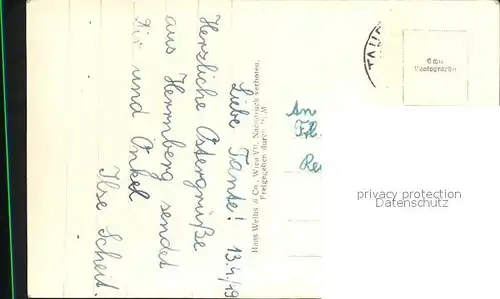 Liebe Tante! 13.4./19
Herzliche Ostergrüße
aus Herrnberg sendet
Dir und Onkel
Ilse Scheit.
Hans Weihs & Co., Wien VII. Nachdruck verboten.
Freigegeben durch
An
Frl.
Echte
Photographie
privacy protection
Datenschutz